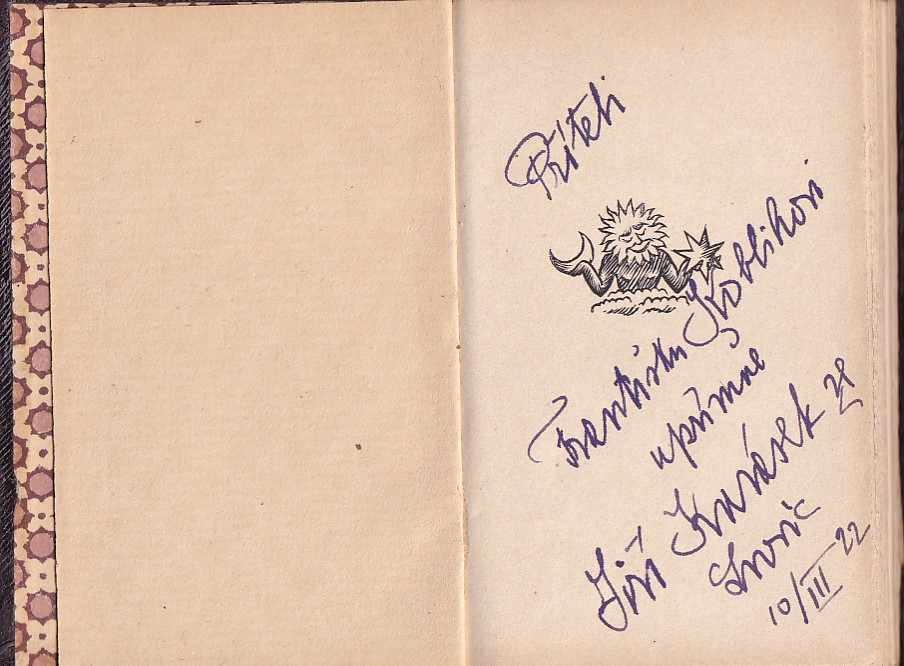 Příteli
Františku Koblihovi
upřímně
Jiří Karásek ze
Lvovic
10/III 22